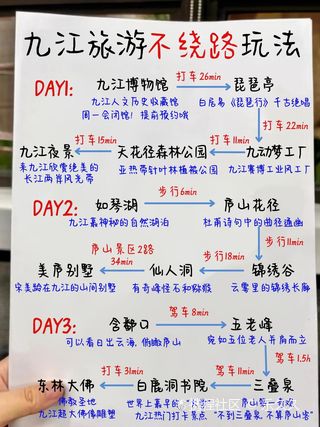 九江旅游不绕路玩法
DAY1: 九江博物馆 打车26min 琵琶亭
九江人文历史收藏馆 白居易《琵琶行》千古绝唱
周一会闭馆! 提前预约哦
打车22min
九江夜景 打车15min 天花径森林公园 打车11min 九云动梦工厂
来九江欣赏绝美的 亚热带针叶林植被公园 九江赛博工业风工厂
长江两岸风光带
DAY2: 如琴湖 步行6min 庐山花径
九江嘉神秘的自然湖泊 杜甫诗句中的曲径通幽
庐山景区2路 步行11min
美庐别墅 34min 仙人洞 步行18min 锦绣谷
宋美龄在九江的山间别墅 有奇峰怪石和猕猴 云雾里的锦绣长廊
DAY3: 含鄱口 驾车8min 五老峰
可以看日出云海, 俯瞰庐山 宛如五位老人并肩而立
驾车1.5h
东林大佛 打车31min 白鹿洞书院 驾车11min 三叠泉
佛教圣地 世界上最早的
九江超大佛像雕塑 九江热门打卡景点 "不到三叠泉, 不算庐山客"